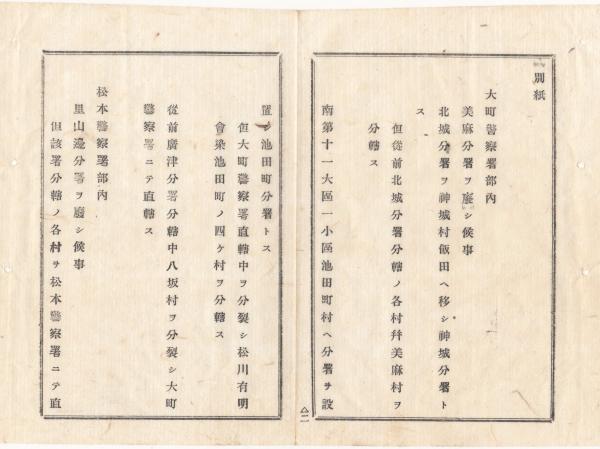 別紙
大町警察署部內
美麻分署ヲ廢シ候事
北城分署ヲ神城村飯田ヘ移シ神城分署ト
ス
但從前北城分署分轄ノ各村幷美麻村ヲ
分轄ス
南第十一大區一小區池田町村ヘ分署ヲ設
置シ池田町分署トス
但大町警察署直轄中ヲ分裂シ松川有明
會染池田町ノ四ケ村ヲ分轄ス
從前廣津分署分轄中八坂村ヲ分裂シ大町
警察署ニテ直轄ス
松本警察署部內
里山邊分署ヲ廢シ候事
但該署分轄ノ各村ヲ松本警察署ニテ直
二